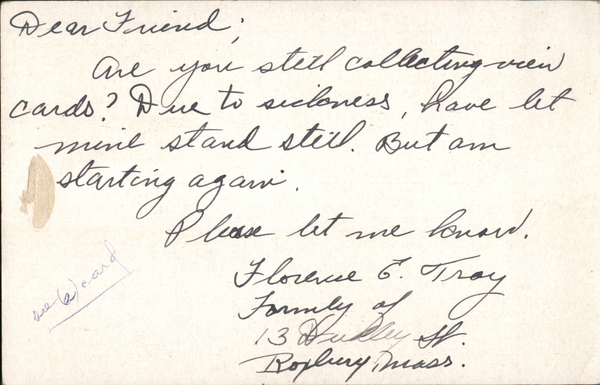 Dear Friend;
Are you still collecting view
cards? Due to sickness, have let
mine stand still. But am
starting again.
Please let me know.
Florence E. Troy
Formly of
13 Dudley St.
Roxbury Mass.
see (2) card